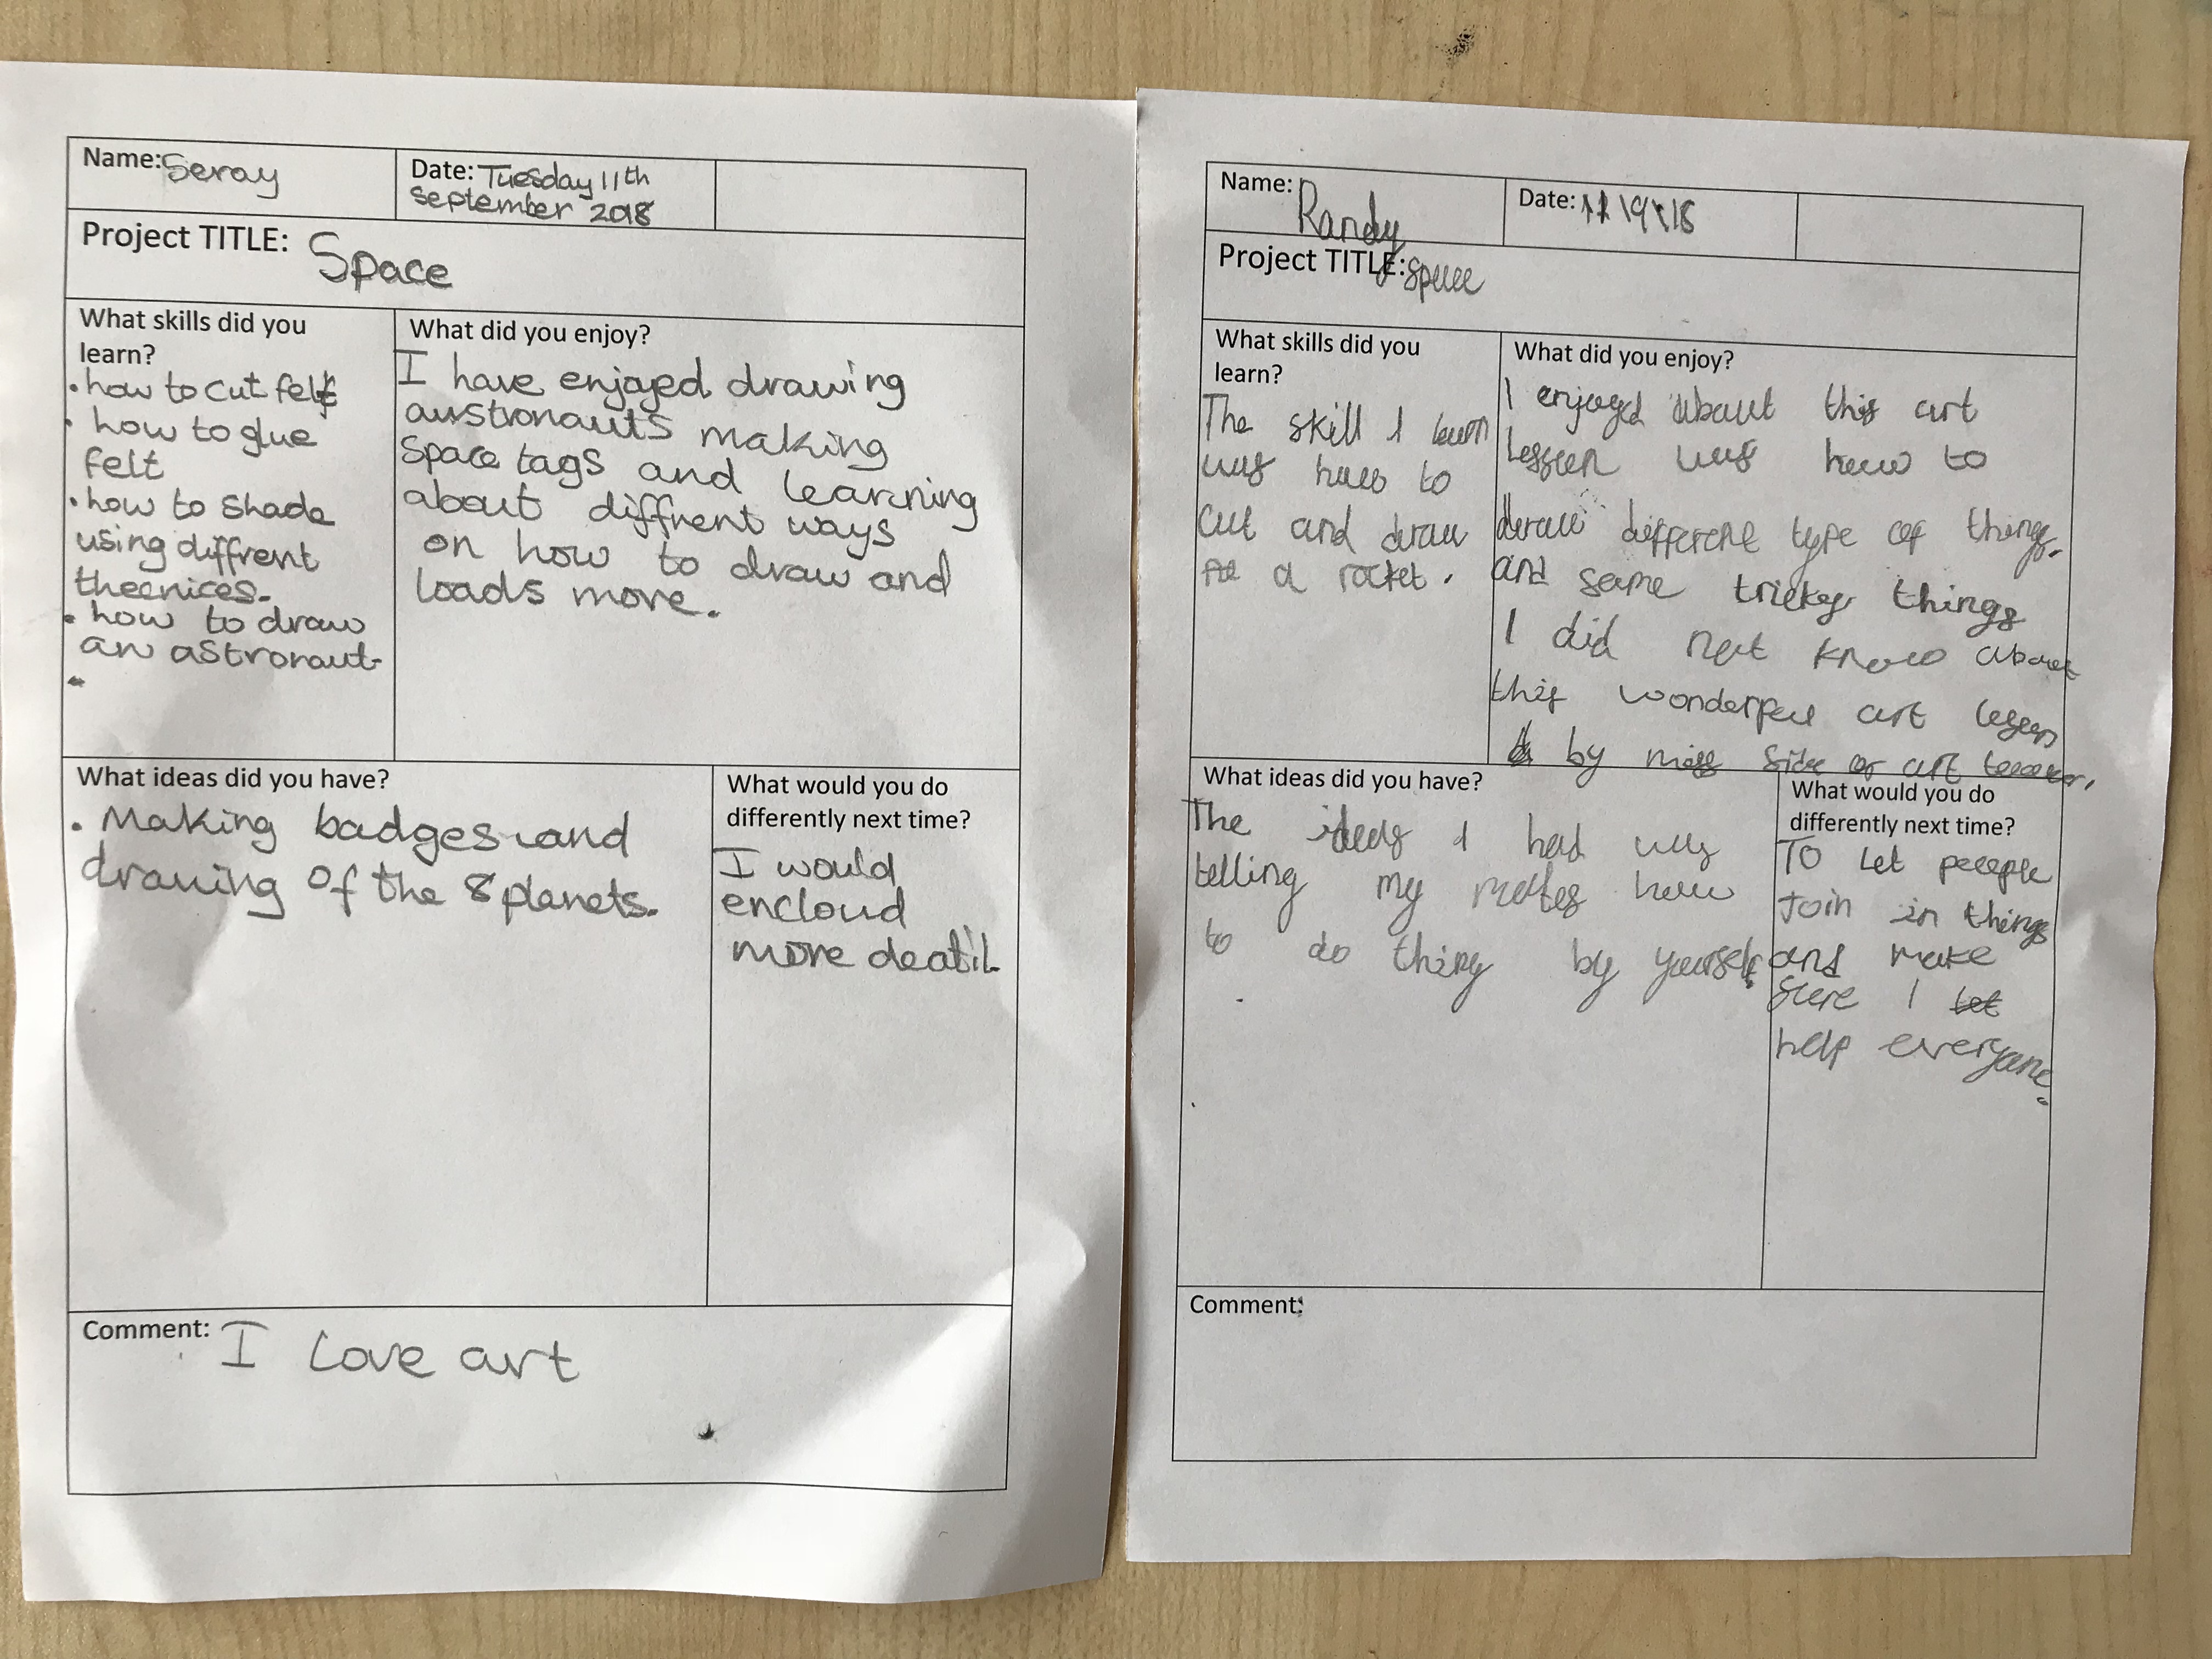 Name: Seray
Date: Tuesday 11th
September 2018
Project TITLE: Space
What skills did you
learn?
• how to cut felt
• how to glue
felt
• how to shade
using diffrent
theenices.
• how to draw
an astronaut
What did you enjoy?
I have enjoyed drawing
austronauts making
space tags and learning
about diffrent ways
on how to draw and
loads more.
What ideas did you have?
. Making badges and
drawing of the 8 planets.
What would you do
differently next time?
I would
encloud
more deatil.
Comment: I Love art
Name: Randy
Date: 11/9/18
Project TITLE: space
What skills did you
learn?
The skill I learn
was how to
cut and draw
a rocket.
What did you enjoy?
I enjoyd about this art
Lesson was how to
draw different type of things.
and some tricky things
I did not know about
this wonderful art lesson
by miss or art teacher.
What ideas did you have?
The ideas I had was
telling my mates how
to do thing by yourself.
What would you do
differently next time?
To Let people
Join in things
and make
sure I let
help everyone.
Comment: